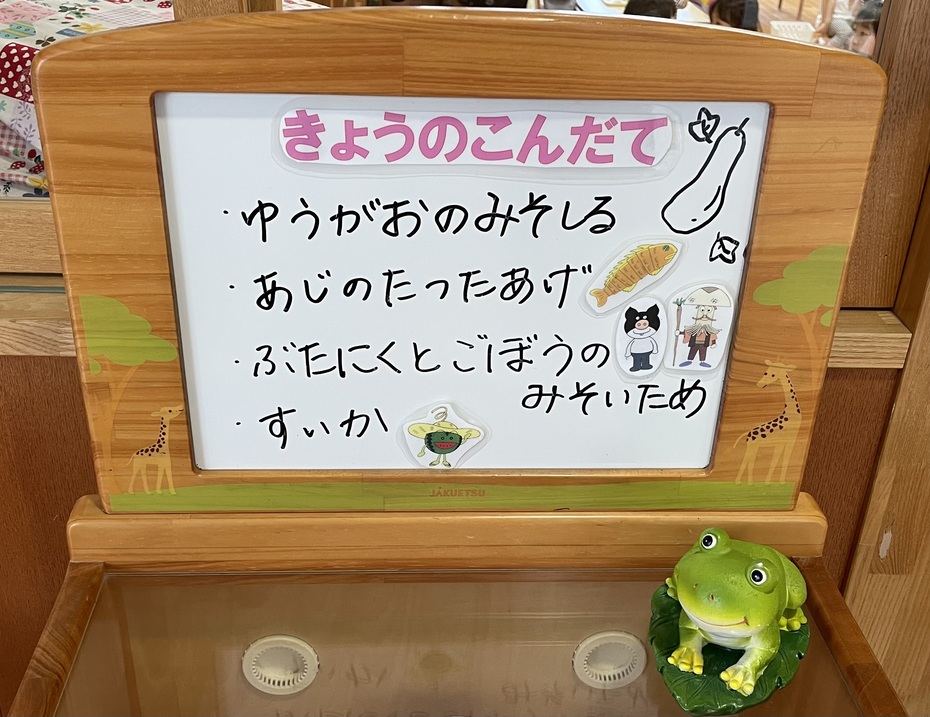 きょうのこんだて
・ゆうがおのみそしる
・あじのたつたあげ
・ぶたにくとごぼうの
みそいため
・すいか
JAKUETSU